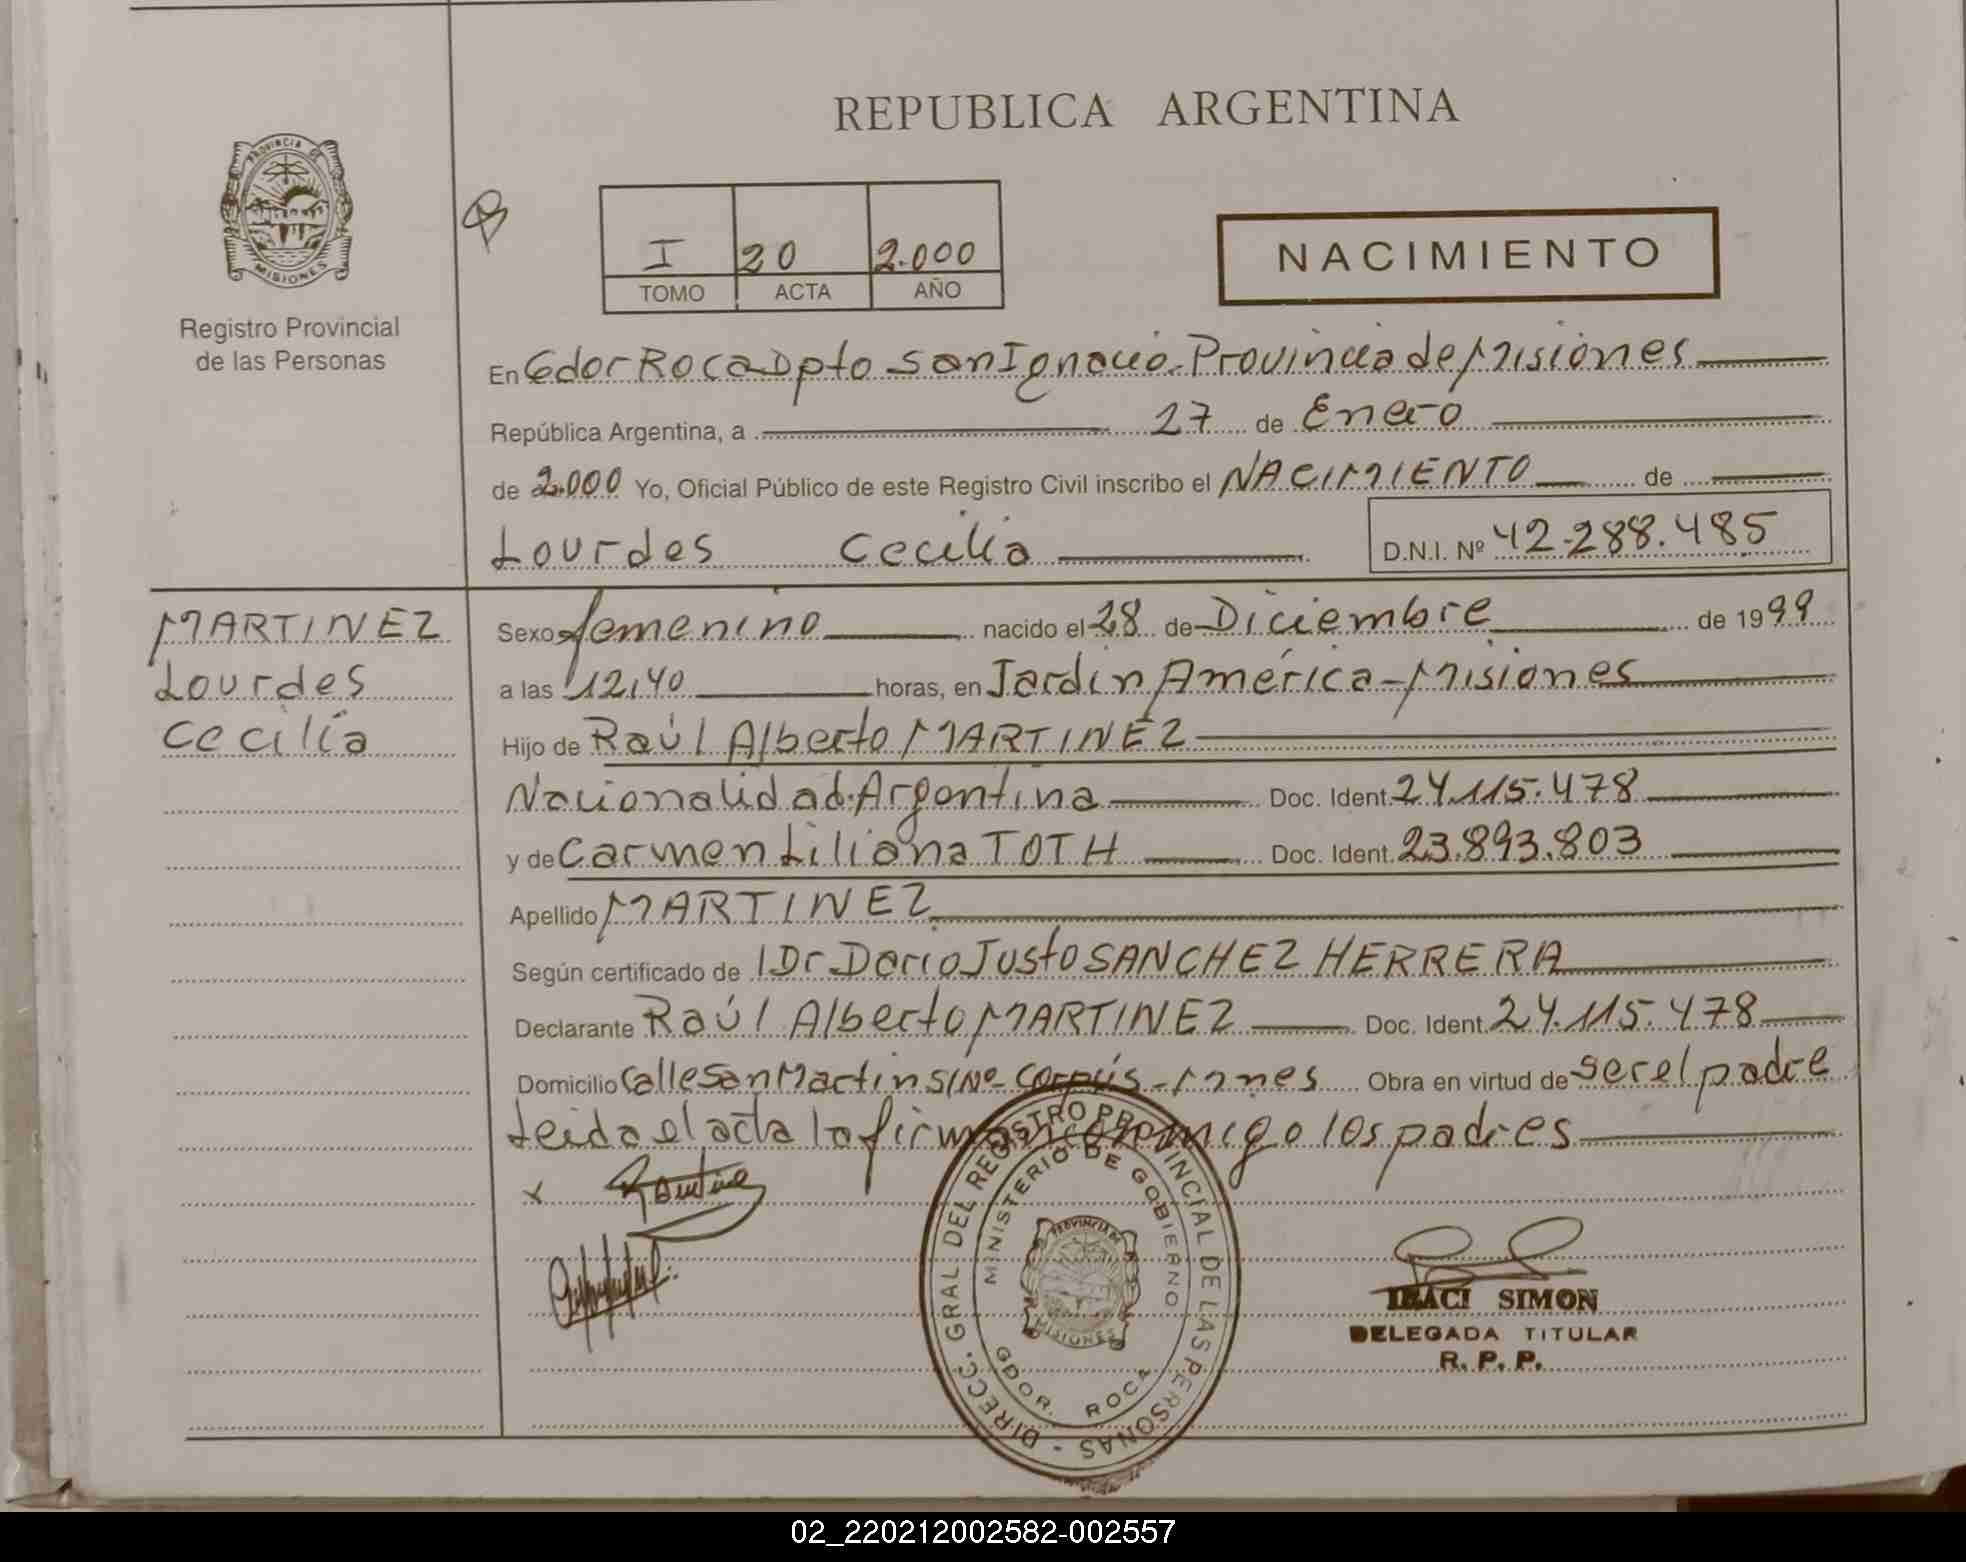 REPUBLICA ARGENTINA
PROVINCIA DE
MISIONES
Registro Provincial
de las Personas
I 20 2.000
TOMO ACTA AÑO
NACIMIENTO
En Gdor Roca Dpto San Ignacio. Provincia de Misiones
República Argentina, a 27 de Enero
de 2.000 Yo, Oficial Público de este Registro Civil inscribo el NACIMIENTO de
Lourdes Cecilia D.N.I. Nº 42.288.485
MARTINEZ
Lourdes
Cecilia
Sexo femenino nacido el 28 de Diciembre de 1999
a las 12,40 horas, en Jardín América - Misiones
Hijo de Raúl Alberto MARTINEZ
Nacionalidad Argentina Doc. Ident. 24.115.478
y de Carmen Liliana TOTH Doc. Ident. 23.893.803
Apellido MARTINEZ
Según certificado de Dr Dario Justo SANCHEZ HERRERA
Declarante Raúl Alberto MARTINEZ Doc. Ident. 24.115.478
Domicilio Calle San Martin S/Nº - Corpus - Mnes Obra en virtud de ser el padre
Leida el acta la firman conmigo los padres
x
DIRECC. GRAL DEL REGISTRO PROVINCIAL DE LAS PERSONAS -
MINISTERIO DE GOBIERNO
PROVINCIA
MISIONES
GDOR. ROCA
IRACI SIMON
DELEGADA TITULAR
R. P. P.
02_220212002582-002557